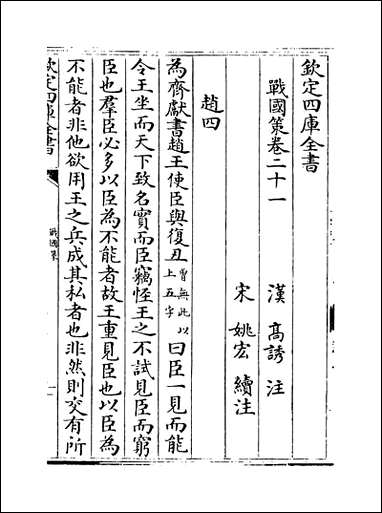 欽定四庫全書
戰國策卷二十一
漢 高誘 注
宋 姚宏 續注
趙四
為齊獻書趙王使臣與復丑曾無此以上五字曰臣一見而能
令王坐而天下致名寳而臣竊怪王之不試見臣而窮
臣也羣臣必多以臣為不能者故王重見臣也以臣為
不能者非他欲用王之兵成其私者也非然則交有所
欽定四庫全書
戰國策
一